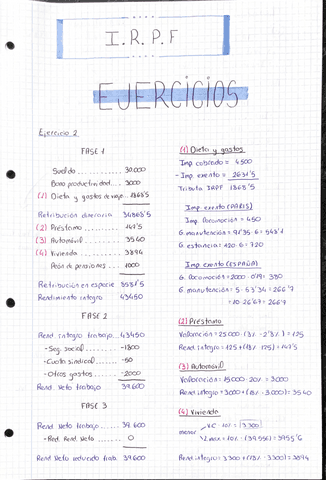 I.R.P.F
EJERCICIOS
Ejercicio 2
FASE 1
Sueldo 30.000
Bono productividad 3000
(1) Dieta y gastos de viaje 1868'5
Retribución dineraria 34868'5
(2) Préstamo 147'5
(3) Automóvil 3540
(4) Vivienda 3894
Plan de pensiones 1000
Retribución en especie 8581'5
Rendimiento íntegro 43450
FASE 2
Rend. íntegro trabajo 43450
- Seg. social -1800
- Cuota sindical -50
- Otros gastos -2000
Rend. Neto trabajo 39.600
FASE 3
Rend. Neto trabajo 39.600
- Red. Rend. Neto 0
Rend. Neto reducido trab. 39.600
(1) Dieta y gastos
Imp. cobrado = 4500
- Imp. exento = 2631'5
Tributa IRPF 1868'5
Imp. exento (PARIS)
Imp. locomoción = 450
G. manutención = 91'35 · 6 = 548'1
G. estancia = 120 · 6 = 720
Imp. exento (ESPAÑA)
G. locomoción = 2000 · 0'19 = 380
G. manutención = 5 · 53'34 = 266'7
10 · 26'67 = 266'7
(2) Préstamo
Valoración = 25000 · (3% - 2'5%) = 125
Rend. íntegro = 125 + (18% · 125) = 147'5
(3) Automóvil
Valoración = 15.000 · 20% = 3.000
Rend. íntegro = 3000 + (18% · 3.000) = 3540
(4) Vivienda
menor
VC · 10% = 3300
Rend. íntegro = 3300 + (18% · 3300) = 3894